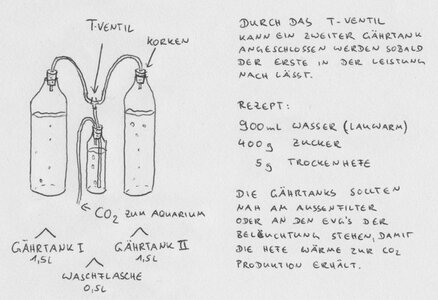 T-VENTIL
KORKEN
CO2 ZUM AQUARIUM
GÄHRTANK I
1,5L
GÄHRTANK II
1,5L
WASCHFLASCHE
0,5L
DURCH DAS T-VENTIL
KANN EIN ZWEITER GÄHRTANK
ANGESCHLOSSEN WERDEN SOBALD
DER ERSTE IN DER LEISTUNG
NACH LÄSST.
REZEPT:
900ml WASSER (LAUWARM)
400g ZUCKER
5g TROCKENHEFE
DIE GÄHRTANKS SOLLTEN
NAH AM AUSSENFILTER
ODER AN DEN EVG'S DER
BELEUCHTUNG STEHEN, DAMIT
DIE HEFE WÄRME ZUR CO2
PRODUKTION ERHÄLT.